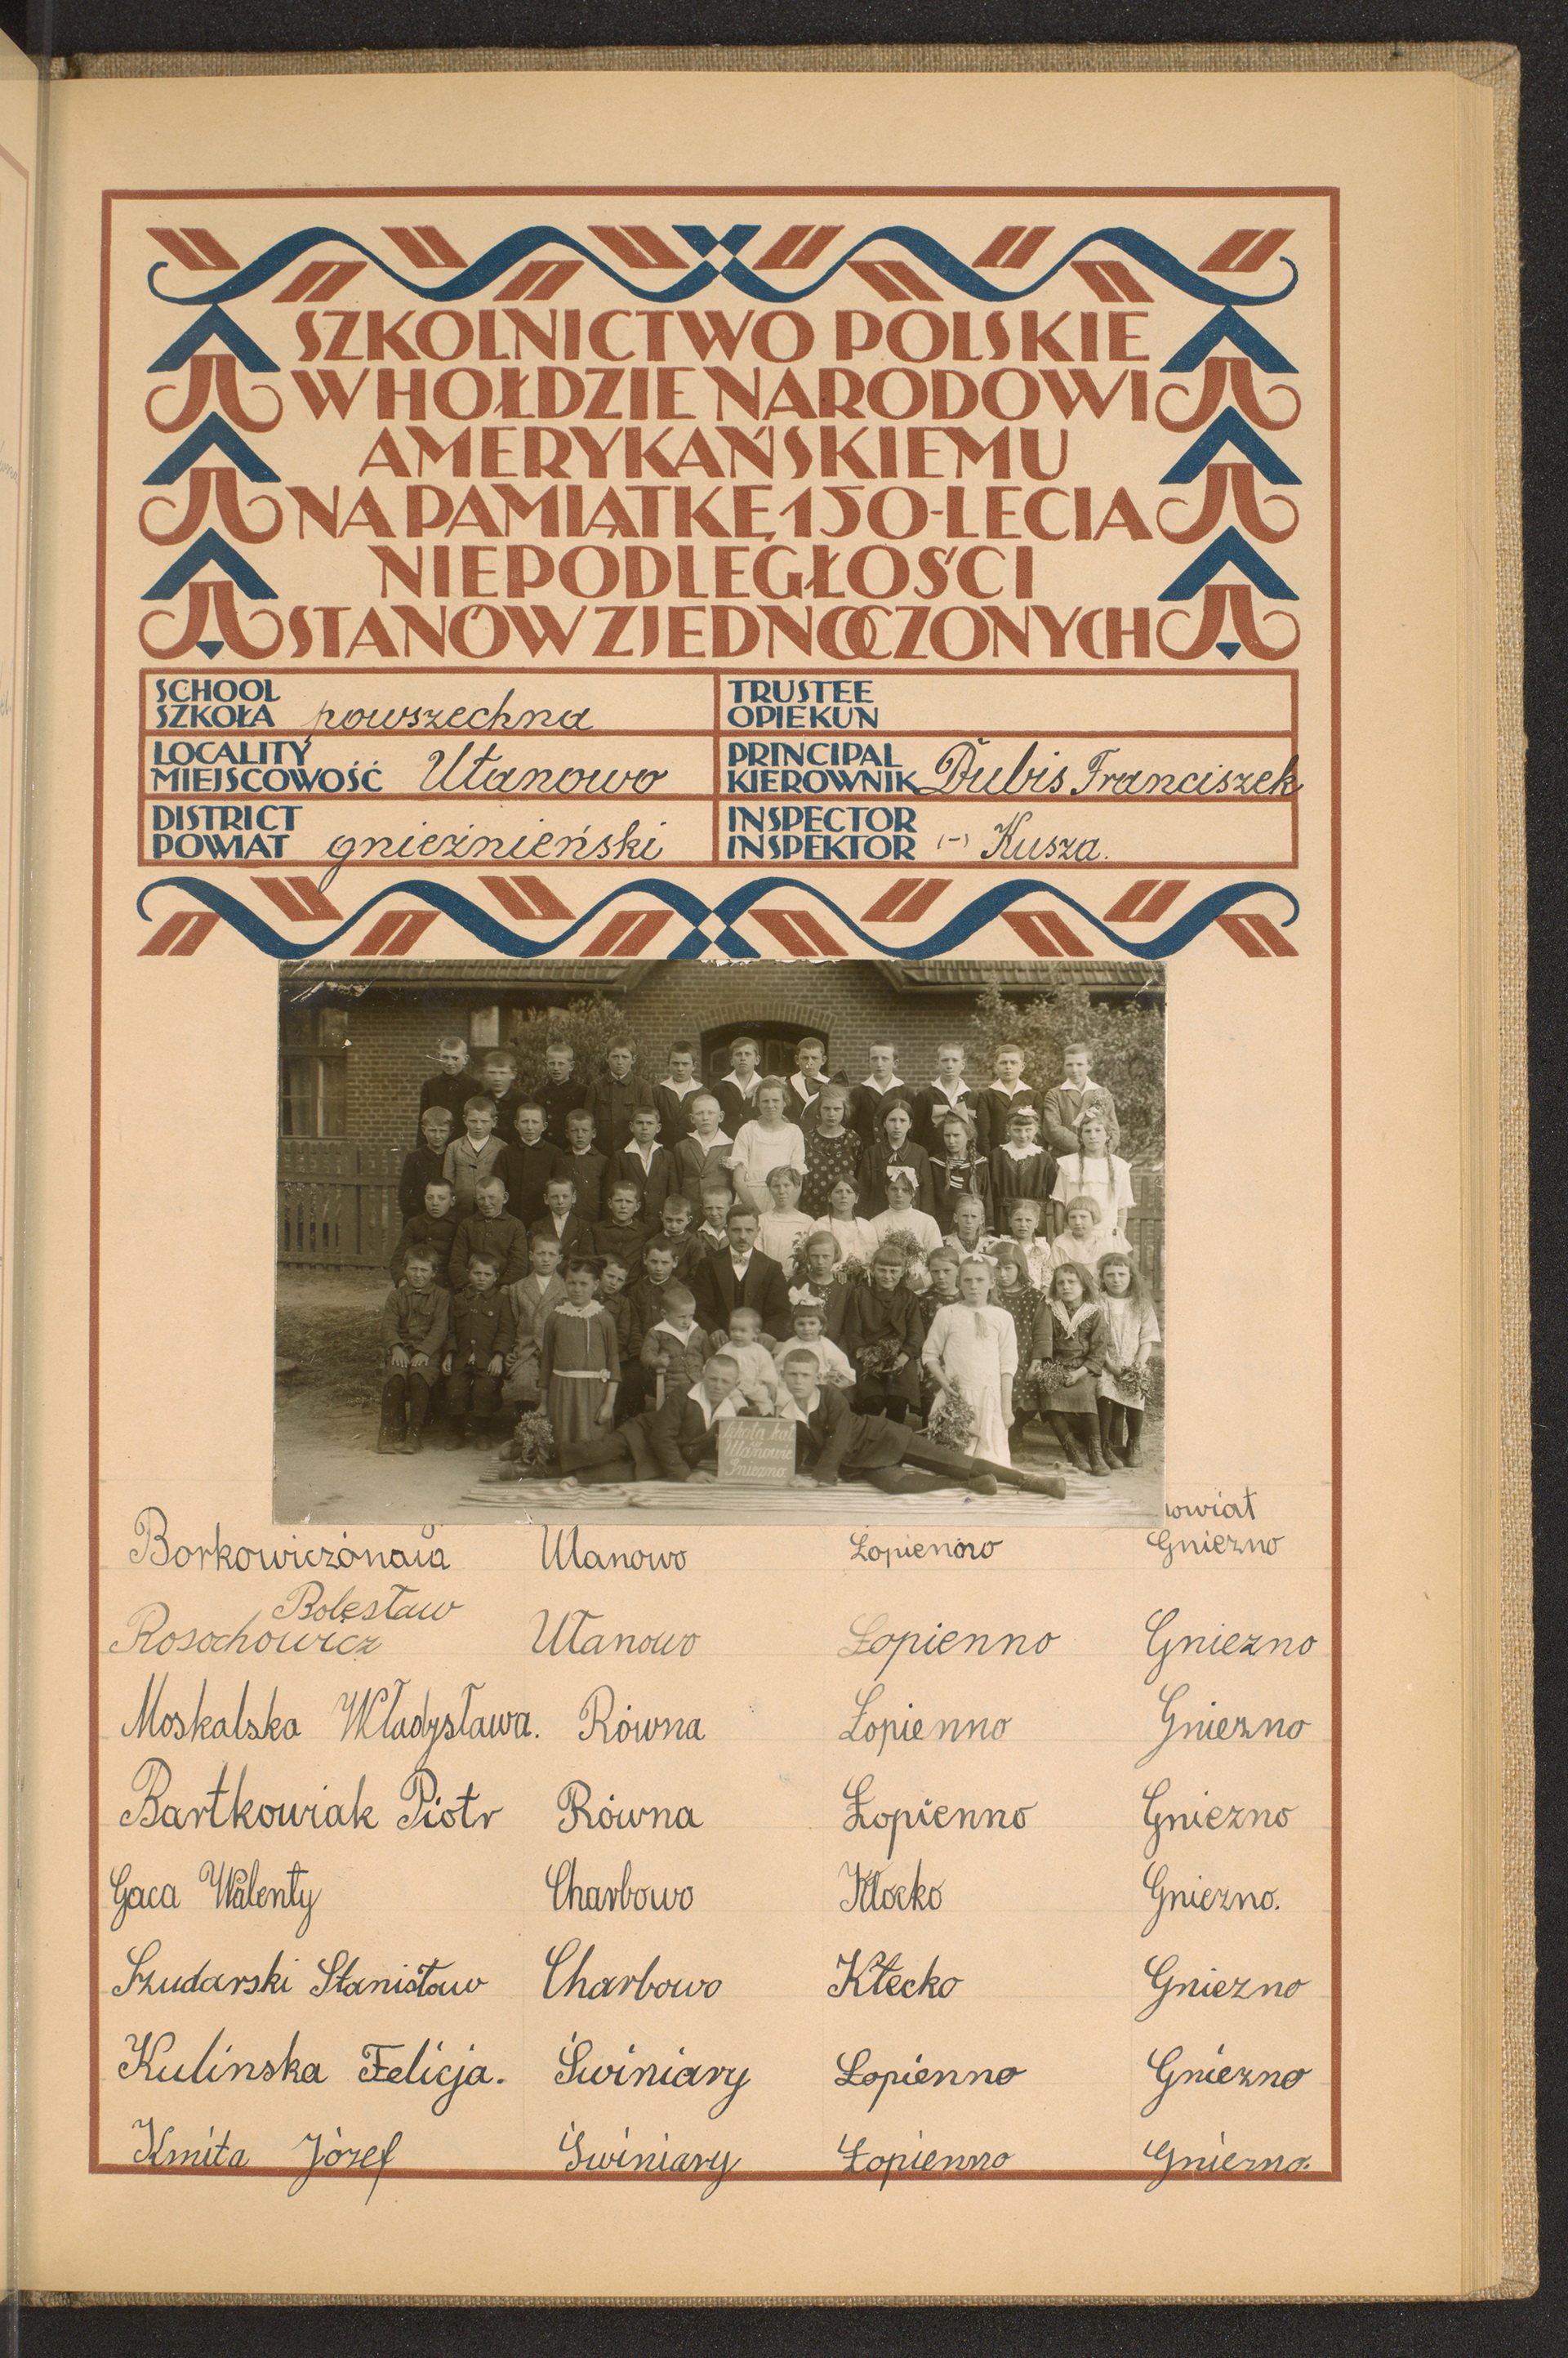 SZKOLNICTWO POLSKIE
W HOŁDZIE NARODOWI
AMERYKAŃSKIEMU
NA PAMIĄTKĘ 150-LECIA
NIEPODLEGŁOŚCI
STANÓW ZJEDNOCZONYCH
SCHOOL
SZKOŁA powszechna
TRUSTEE
OPIEKUN
LOCALITY
MIEJSCOWOŚĆ Ułanowo
PRINCIPAL
KIEROWNIK Dubis Franciszek
DISTRICT
POWIAT gnieźnieński
INSPECTOR
INSPEKTOR (-) Kusza.
Szkoła kat.
w
Ułanowie
Gniezno
Ulanowo Łopienno Gniezno
Bolesław
Rosochowicz Ułanowo Łopienno Gniezno
Moskalska Władysława. Równa Łopienno Gniezno
Bartkowiak Piotr Równa Łopienno Gniezno
Gaca Walenty Charbowo Kłecko Gniezno.
Szudarski Stanisław Charbowo Kłecko Gniezno
Kulinska Felicja. Świniary Łopienno Gniezno
Kmita Józef Świniary Łopienno Gniezno.